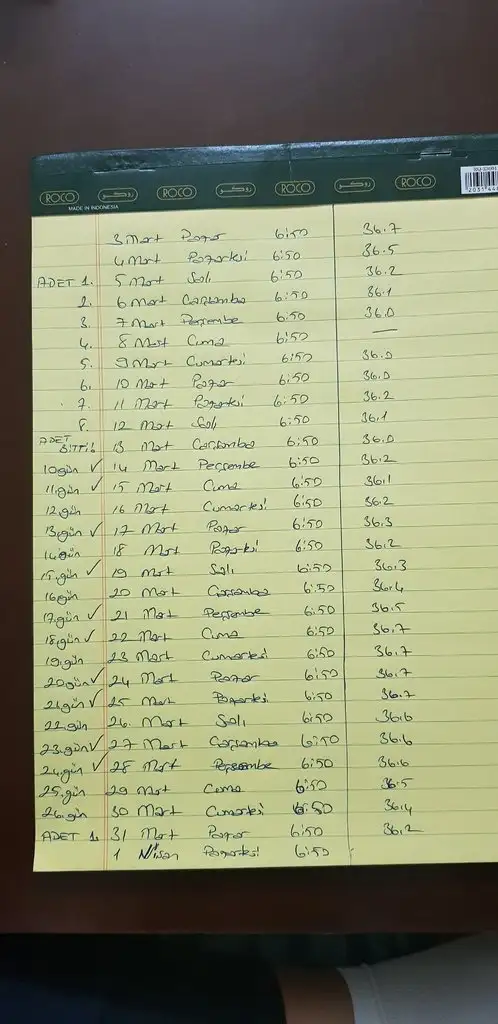 ROCO روكو ROCO روكو ROCO روكو ROCO
MADE IN INDONESIA
3 Mart Pazar 6:50 36.7
4 Mart Pazartesi 6:50 36.5
ADET 1. 5 Mart Salı 6:50 36.2
2. 6 Mart Çarşamba 6:50 36.1
3. 7 Mart Perşembe 6:50 36.0
4. 8 Mart Cuma 6:50 —
5. 9 Mart Cumartesi 6:50 36.0
6. 10 Mart Pazar 6:50 36.0
7. 11 Mart Pazartesi 6:50 36.2
8. 12 Mart Salı 6:50 36.1
ADET BİTTİ 13 Mart Çarşamba 6:50 36.0
10.gün ✓ 14 Mart Perşembe 6:50 36.2
11.gün ✓ 15 Mart Cuma 6:50 36.1
12.gün 16 Mart Cumartesi 6:50 36.2
13.gün ✓ 17 Mart Pazar 6:50 36.3
14.gün 18 Mart Pazartesi 6:50 36.2
15.gün ✓ 19 Mart Salı 6:50 36.3
16.gün 20 Mart Çarşamba 6:50 36.4
17.gün ✓ 21 Mart Perşembe 6:50 36.5
18.gün ✓ 22 Mart Cuma 6:50 36.7
19.gün 23 Mart Cumartesi 6:50 36.7
20.gün ✓ 24 Mart Pazar 6:50 36.7
21.gün ✓ 25 Mart Pazartesi 6:50 36.7
22.gün 26. Mart Salı 6:50 36.6
23.gün ✓ 27 Mart Çarşamba 6:50 36.6
24.gün ✓ 28 Mart Perşembe 6:50 36.6
25.gün 29 Mart Cuma 6:50 36.5
26.gün 30 Mart Cumartesi 6:50 36.4
ADET 1. 31 Mart Pazar 6:50 36.2
1 Nisan Pazartesi 6:50